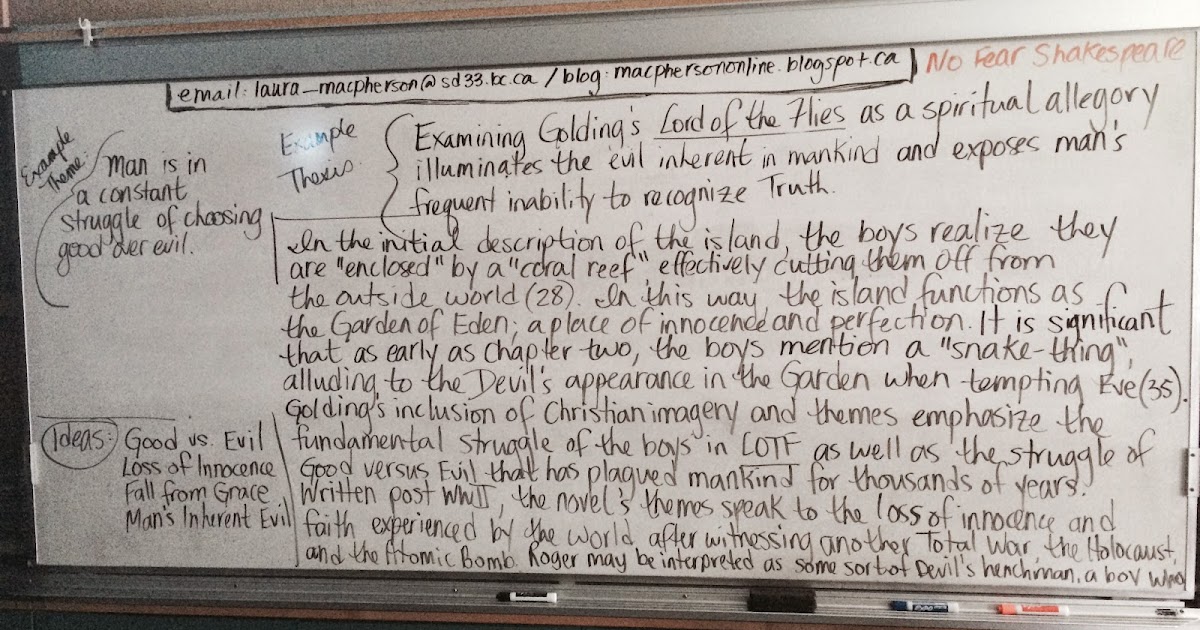 email: laura_macpherson@sd33.bc.ca / blog: macphersononline.blogspot.ca
No Fear Shakespeare
Example
Theme:
Man is in
a constant
struggle of choosing
good over evil.
Example
Thesis
Examining Golding's Lord of the Flies as a spiritual allegory
illuminates the evil inherent in mankind and exposes man's
frequent inability to recognize Truth.
In the initial description of the island, the boys realize they
are "enclosed" by a "coral reef" effectively cutting them off from
the outside world (28). In this way, the island functions as
the Garden of Eden; a place of innocence and perfection. It is significant
that as early as chapter two, the boys mention a "snake-thing",
alluding to the Devil's appearance in the Garden when tempting Eve (35).
Golding's inclusion of Christian imagery and themes emphasize the
fundamental struggle of the boys in LOTF as well as the struggle of
Good versus Evil that has plagued mankind for thousands of years.
Written post WWII, the novel's themes speak to the loss of innocence and
faith experienced by the world after witnessing another Total War, the Holocaust,
and the Atomic Bomb. Roger may be interpreted as some sort of Devil's henchman, a boy who
Ideas:
Good vs. Evil
Loss of Innocence
Fall from Grace
Man's Inherent Evil
EXPO
EXPO